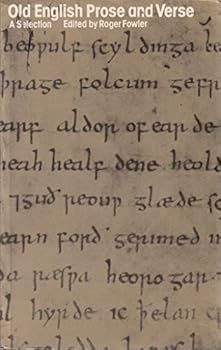 Old English Prose and Verse
A Selection Edited by Roger Fowler
beoƿulf scyldinga le
þrage folcum gefr
earf aldor of earde
heah healf dene heold
⁊guð reouƿ glæde s
earn forð gerimed in
da ræsƿa heoro gar·
l hyrde ic ꝥ elan